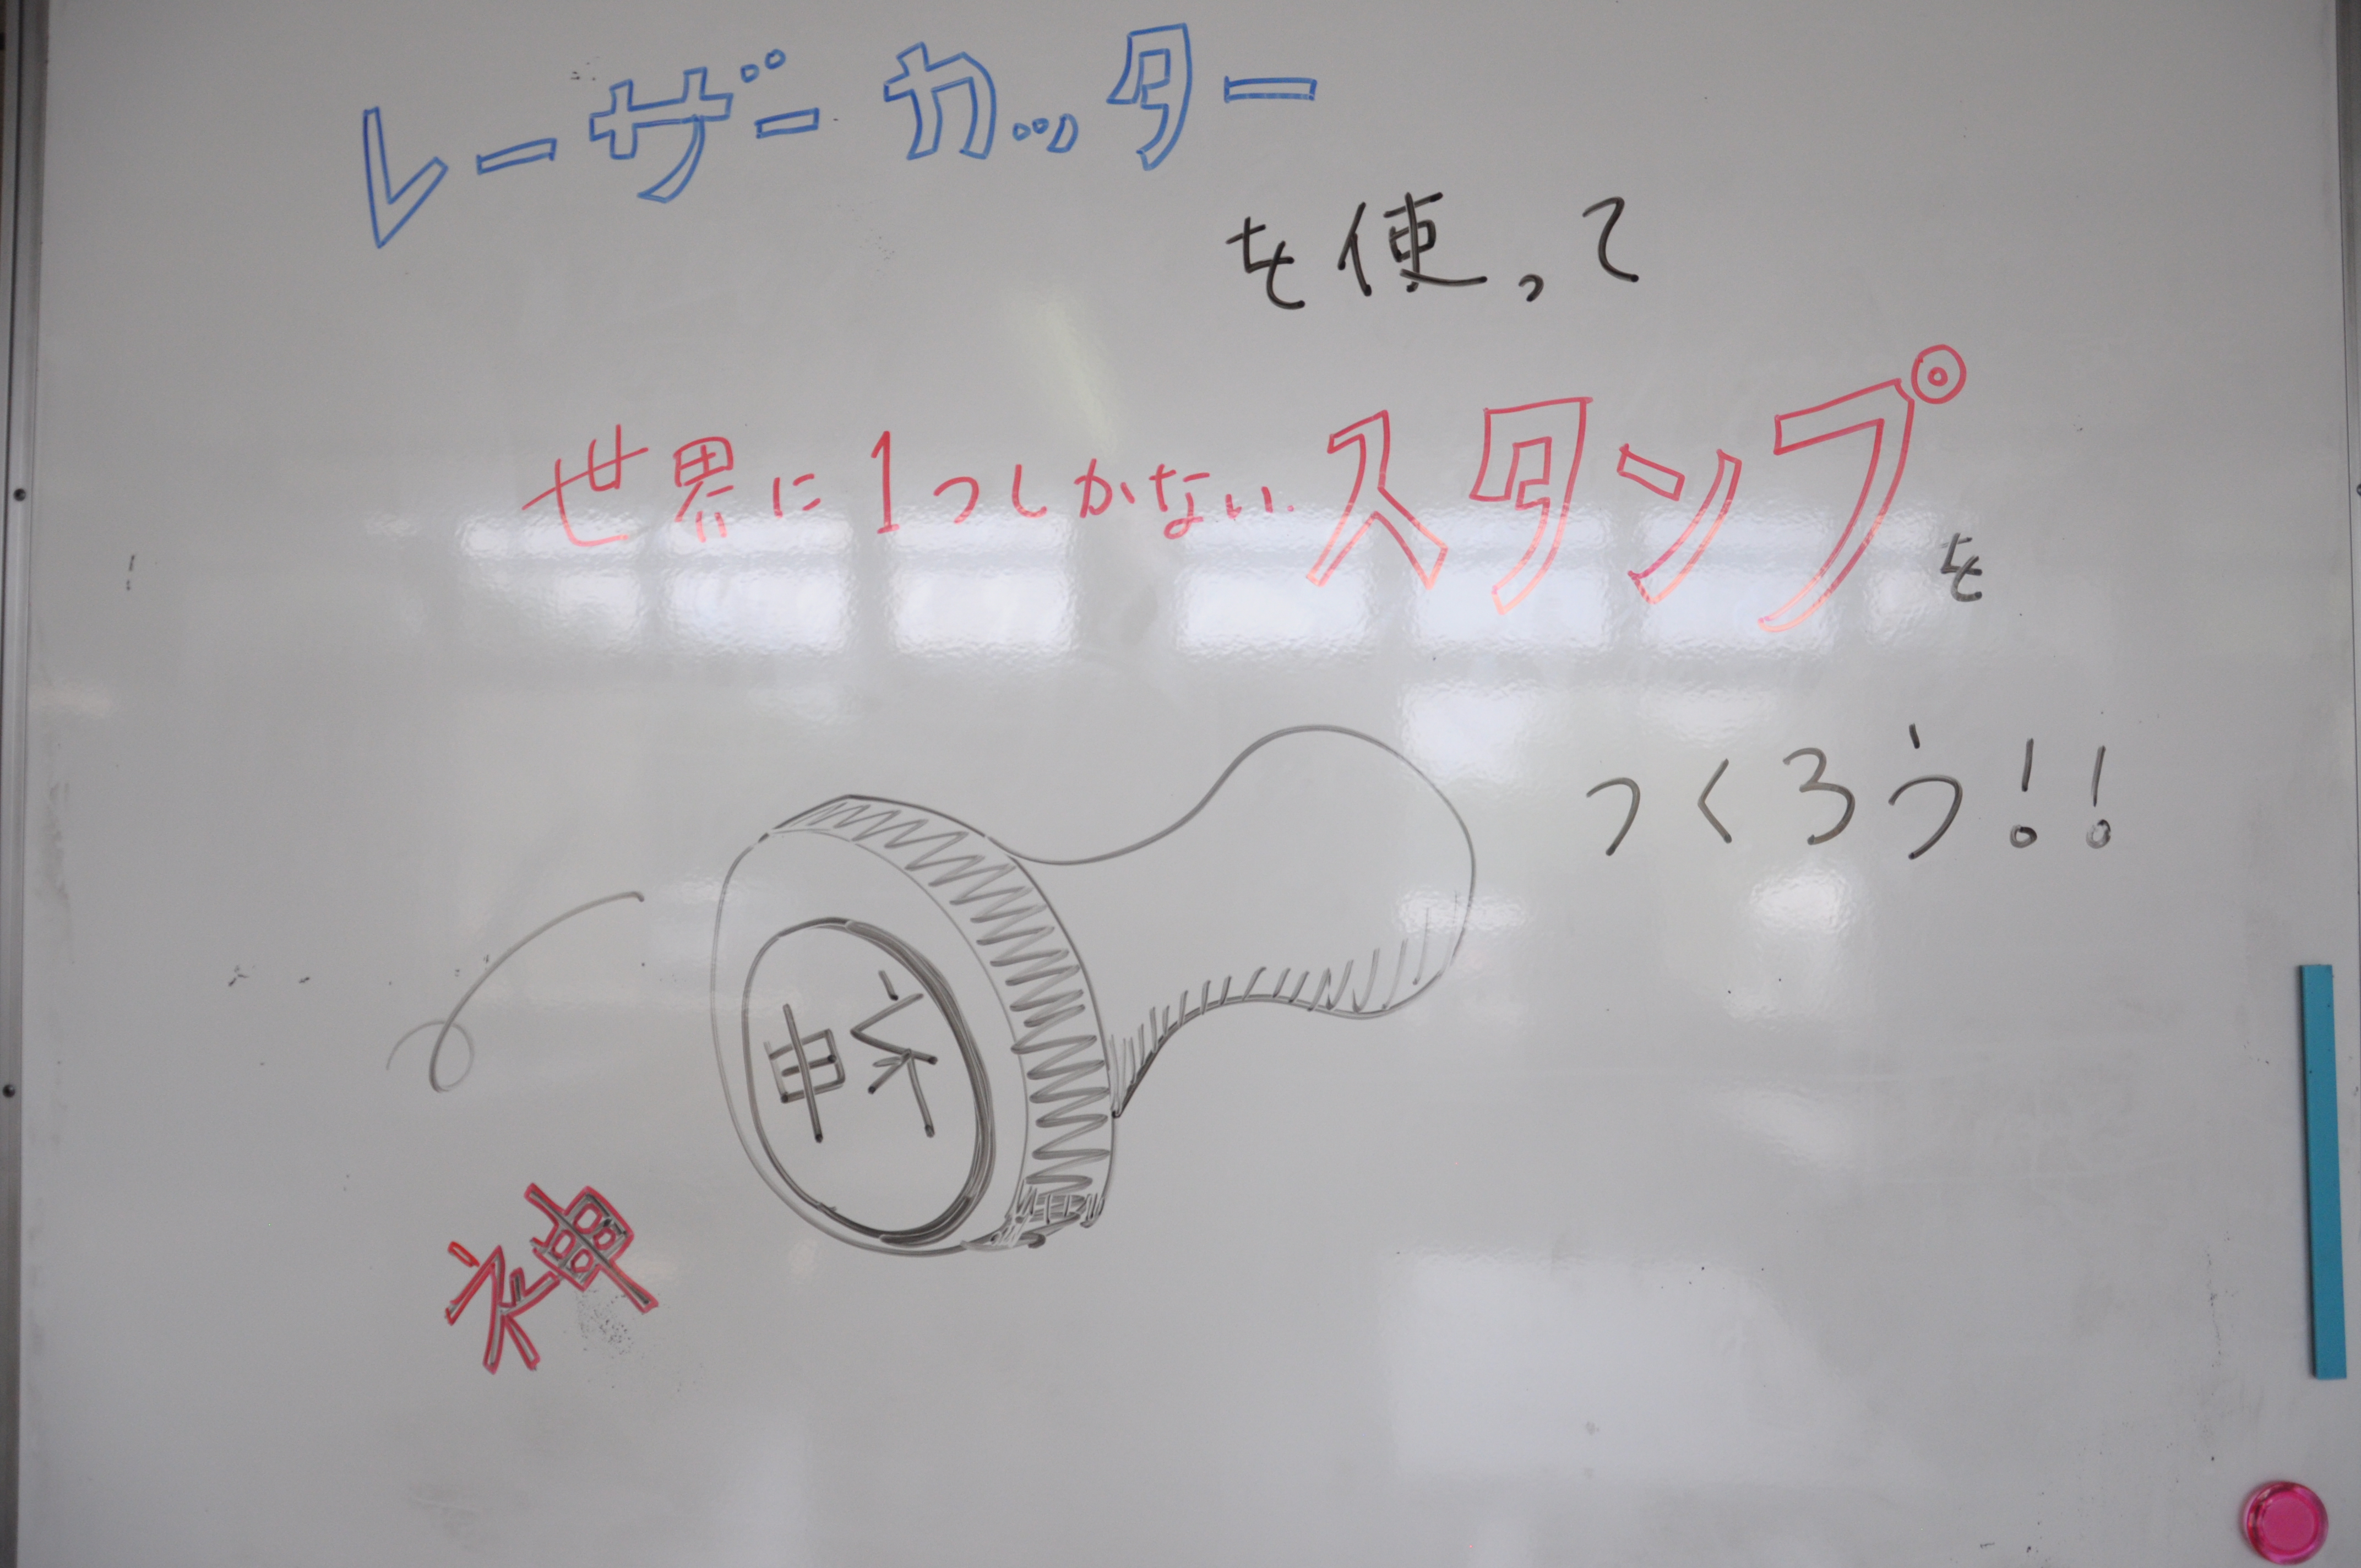 レーザーカッター
を使って
世界に1つしかないスタンプを
つくろう!!
神
神